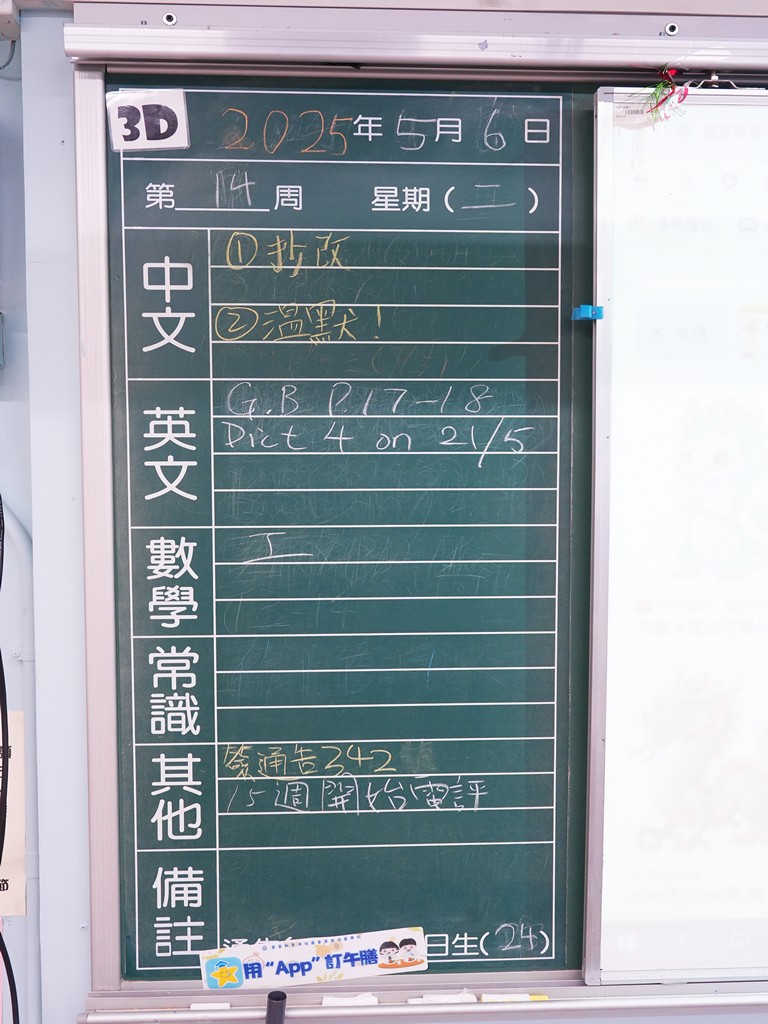 3D 2025年5月6日
第14周 星期(二)
中文
①抄改
②溫默!
英文
G.B P.17-18
Dict 4 on 21/5
數學
工
常識
其他
簽通告342
15週開始電評
備註
日生(24)
用"App"訂午膳
節